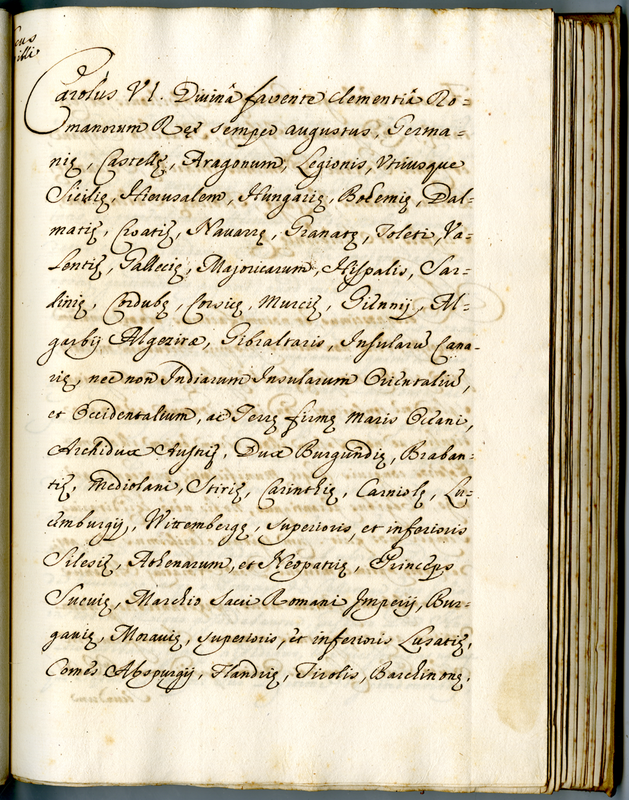 Carolus VI. Divinâ favente Clementiâ Ro=
manorum Rex semper augustus, Germa=
nię, Castellę, Aragonum, Legionis, Utriusque
Sicilię, Hierusalem, Hungarię, Bohemię, Dal=
matię, Croatię, Navarrę, Granatę, Toleti, Va=
lentię, Gallecię, Majoricarum, Hispalis, Sar=
linię, Cordubę, Corsicę, Murcię, Giennij, Al=
garbij Algeziræ, Gibraltaris, Insularū Cana=
rię, nec non Indiarum Insularum Orientaliū,
et Occidentalium, ac Terrę firmę Maris Oceani,
Archidux Austrię, Dux Burgundię, Braban=
tię, Mediolani, Stirię, Carinthię, Carniolę, Lu=
cimburgij, Wittembergę, superioris, et inferioris
Silesię, Athenarum, et Neopatrię, Princeps
Suevię, Marchio Sacri Romani Imperij, Bur=
gavię, Moravię, superioris, et inferioris Lusatię,
Comes Abspurgij, Flandrię, Tirolis, Barchinonę,